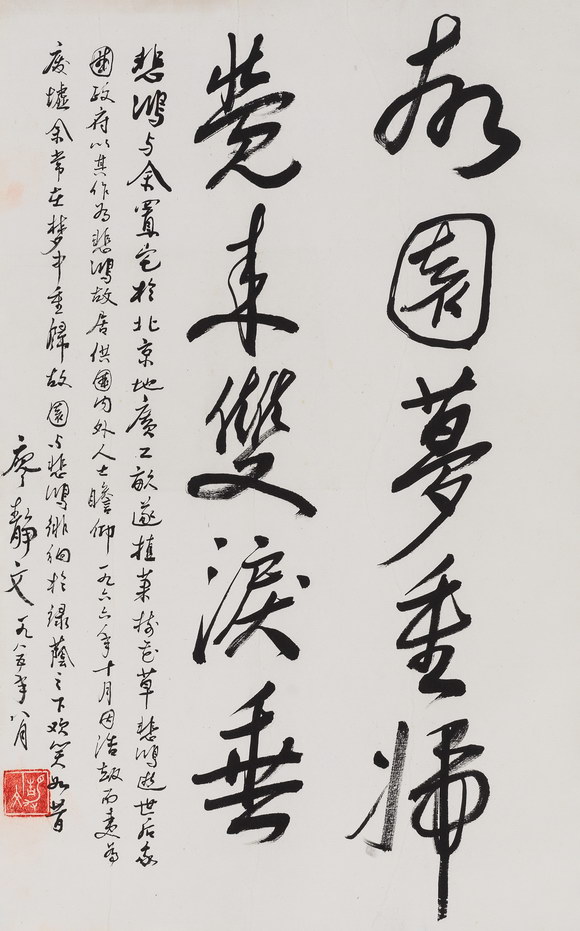 故園夢重歸
覺来雙淚垂
悲鴻与余置宅於北京地廣二畝遂植菓樹花草悲鴻逝世后我
國政府以其作為悲鴻故居供國内外人士瞻仰一九六六年十月因浩劫而夷為
廢墟余常在梦中重歸故園与悲鴻徘徊於绿蔭之下欢笑如昔
廖静文一九八五年八月